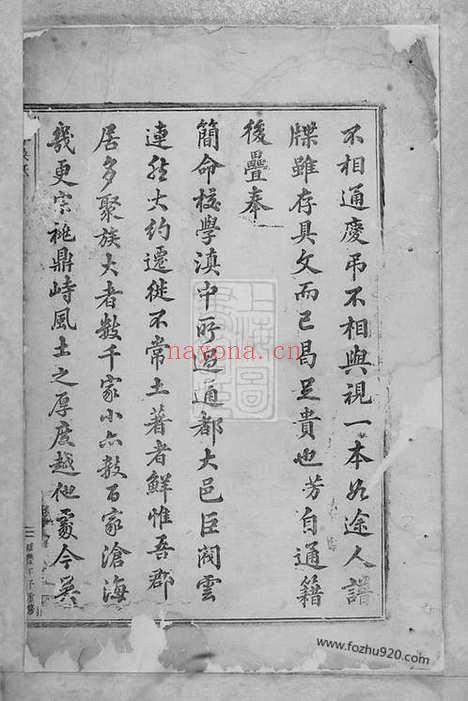 不相通慶弔不相與視一本如途人譜
牒雖存具文而已曷足貴也芳自通籍
後疊奉
簡命校學滇中所過通都大邑巨閥雲
連然大約遷徙不常土著者鮮惟吾郡
居多聚族大者數千家小亦數百家滄海
幾更宗祧鼎峙風土之厚度越他處今吳
nayona.cn
www.fozhu920.com